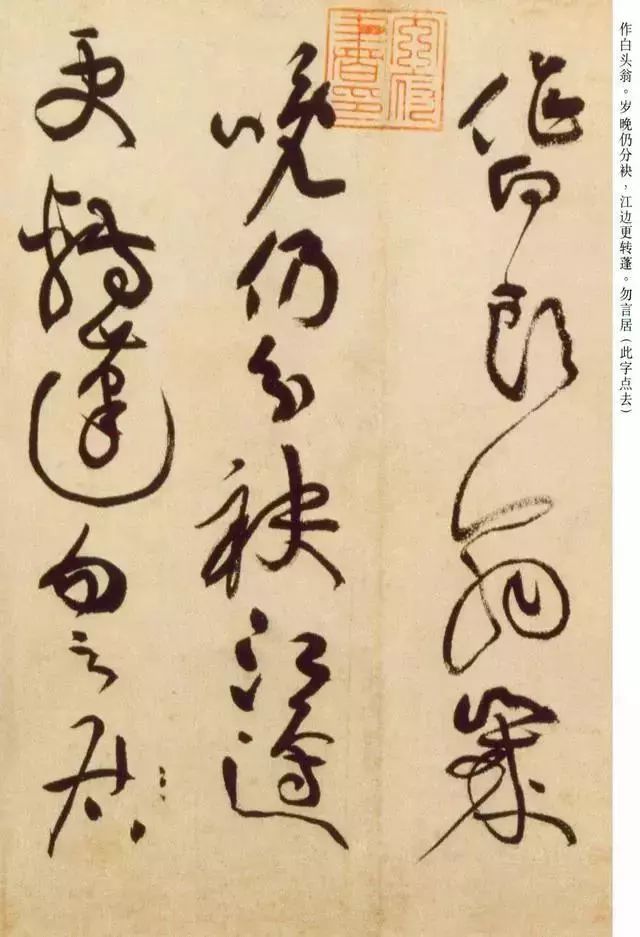 作白头翁。岁晚仍分袂，江边更转蓬。勿言居（此字点去）
作白頭翁歲
晚仍分袂江邊
更轉蓬勿言居